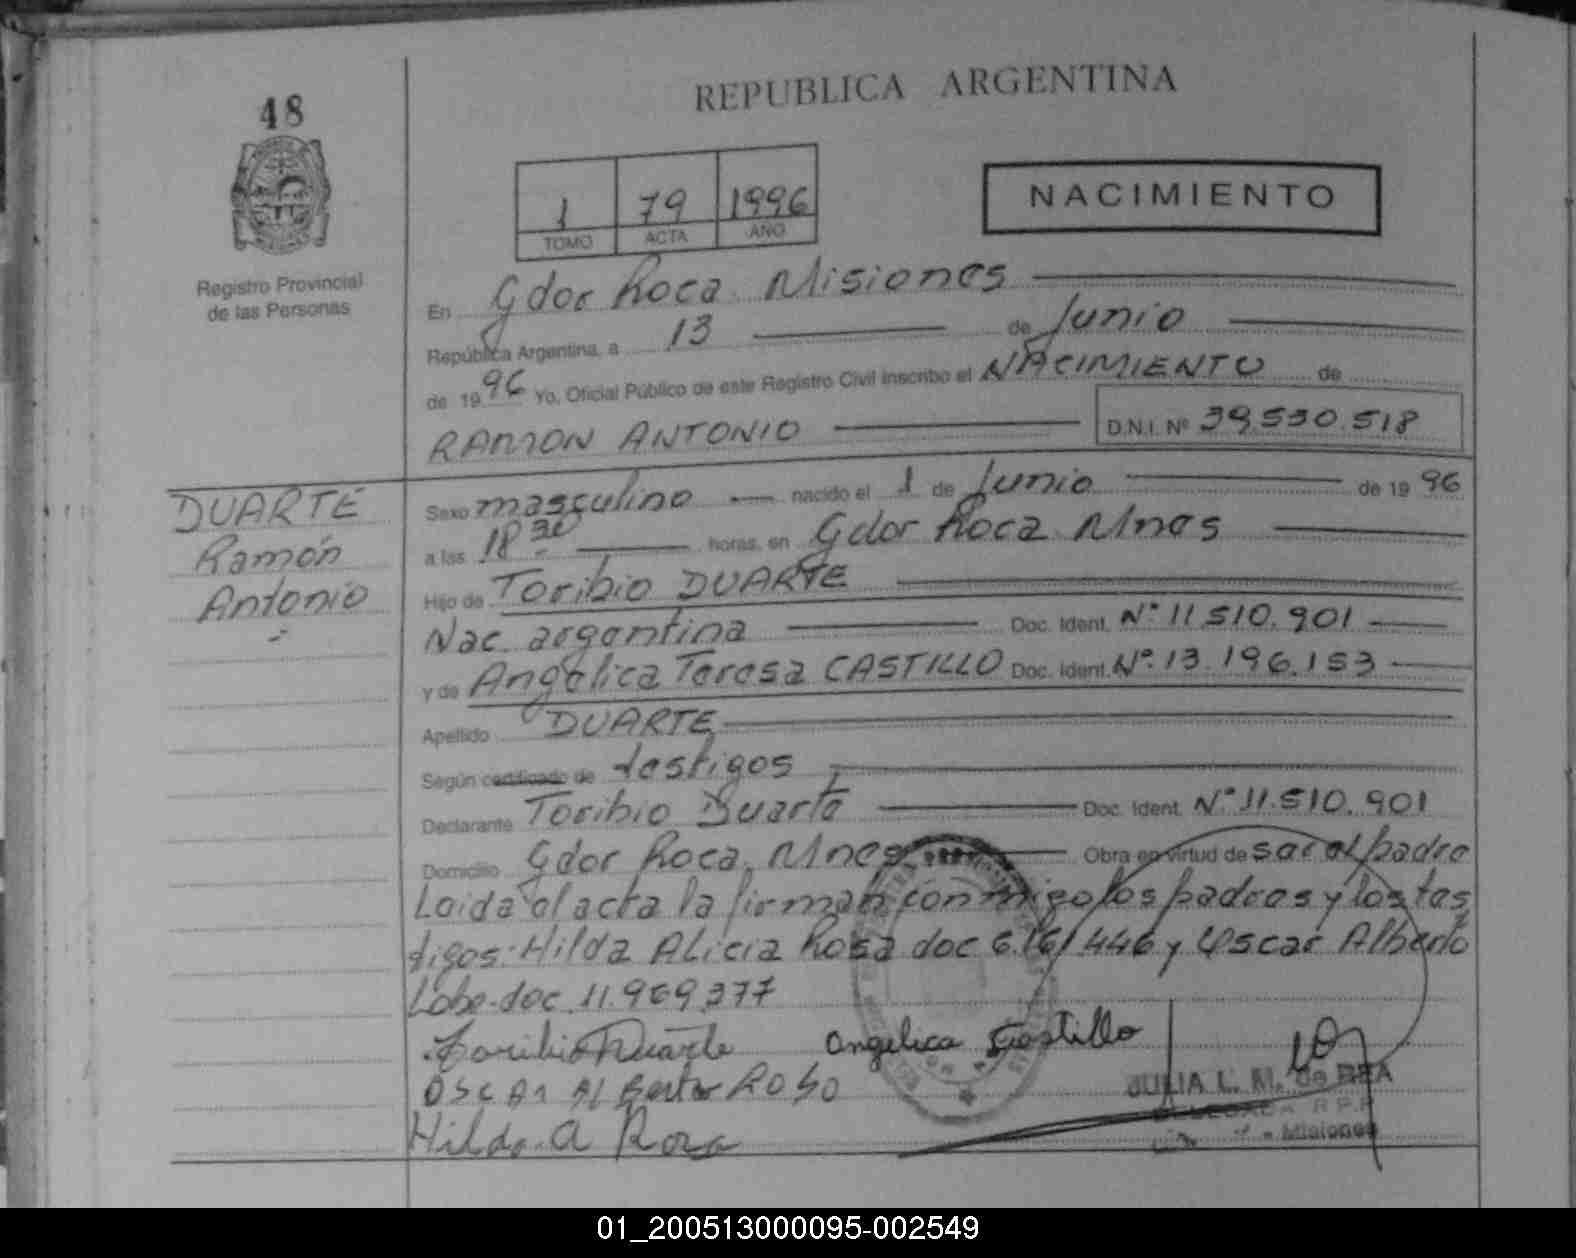 REPUBLICA ARGENTINA
48
1 79 1996
TOMO ACTA AÑO
NACIMIENTO
Registro Provincial
de las Personas
En Gdor Roca Misiones
República Argentina, a 13 de Junio
de 1996 Yo, Oficial Público de este Registro Civil inscribo el NACIMIENTO de
RAMON ANTONIO D.N.I. Nº 39.530.518
DUARTE
Ramón
Antonio
Sexo masculino nacido el 1 de Junio de 1996
a las 18 30 horas, en Gdor Roca Mnes
Hijo de Toribio DUARTE
Nac. argentina Doc. Ident. Nº 11.510.901
y de Angélica Teresa CASTILLO Doc. Ident. Nº 13.196.153
Apellido DUARTE
Según certificado de testigos
Declarante Toribio Duarte Doc. Ident. Nº 11.510.901
Domicilio Gdor Roca, Mnes Obra en virtud de ser el padre
Leida el acta la firman conmigo los padres y los tes
tigos: Hilda Alicia Rosa doc y Oscar Alberto
doc. 11.969.377
Toribio Duarte Angelica Castillo
OSCAR
JULIA L. M. de REA
R.P.P.
Misiones
Hilda A Roza
01_200513000095-002549